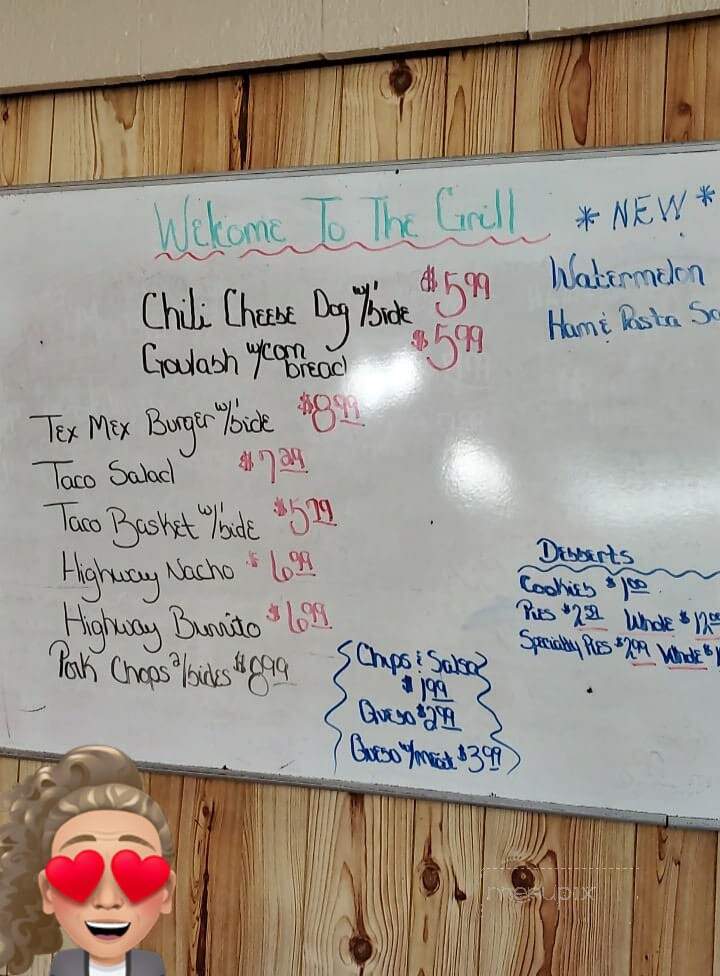 Welcome To The Grill
* NEW *
Watermelon
Ham & Pasta Sa
Chili Cheese Dog w/1 side $5.99
Goulash w/corn bread $5.99
Tex Mex Burger w/1 side $8.99
Taco Salad $7.29
Taco Basket w/1 side $5.79
Highway Nacho $6.99
Highway Burrito $6.99
Pork Chops 2/sides $8.99
Desserts
Cookies $1.00
Pies Whole $12.00
Specialty Pies $2.99 Whole $1
Chips & Salsa
$1.99
Queso $2.99
Queso w/meat $3.99
menupix